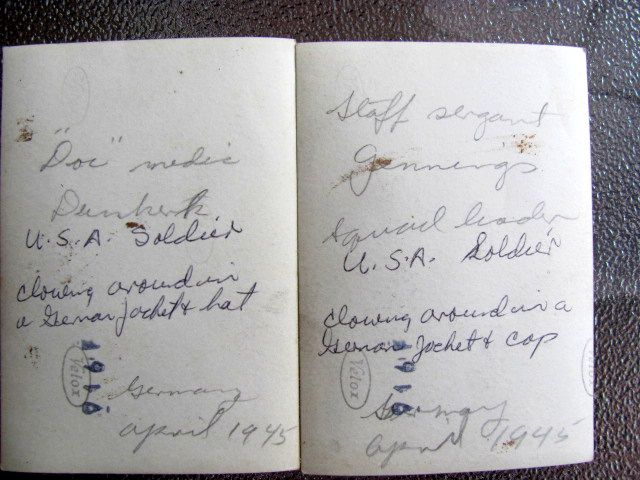 "Doc" medic
Dunkerk
U.S.A. Soldier
clowing around in
a German Jacket & hat
Velox
Germany
april 1945
Staff sergant
Gennings
squad leader
U.S.A. Soldier
clowing around in a
German Jacket & cap
Velox
Germany
april 1945